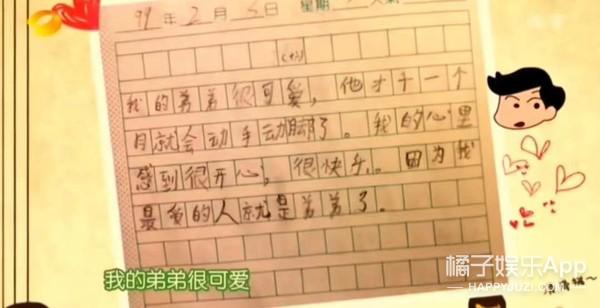 99年2月5日 星期
我的弟弟很可爱，他才十一个
月就会动手动脚了。我的心里
感到很开心，很快乐。因为我
最爱的人就是弟弟了。
我的弟弟很可爱
橘子娱乐App
HAPPYJUZI.COM